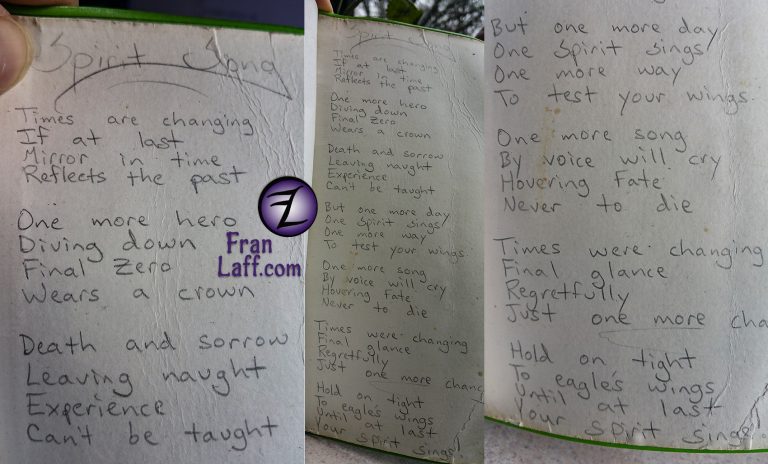 Spirit Song
Times are changing
If at last
Mirror in time
Reflects the past
One more hero
Diving down
Final Zero
Wears a crown
Death and sorrow
Leaving naught
Experience
Can't be taught
Fran
Laff.com
Spirit Song
Times are changing
If at last
Mirror in time
Reflects the past
One more hero
Diving down
Final Zero
Wears a crown
Death and sorrow
Leaving naught
Experience
Can't be taught
But one more day
One Spirit sings
One more way
To test your wings
One more song
By voice will cry
Hovering Fate
Never to die
Times were changing
Final glance
Regretfully
Just one more chanc
Hold on tight
To eagle's wings
Until at last
Your spirit sings.
But one more day
One Spirit sings
One more way
To test your wings.
One more song
By voice will cry
Hovering Fate
Never to die
Times were changing
Final glance
Regretfully
Just one more cha
Hold on tight
To eagle's wings
Until at last
Your spirit sings.